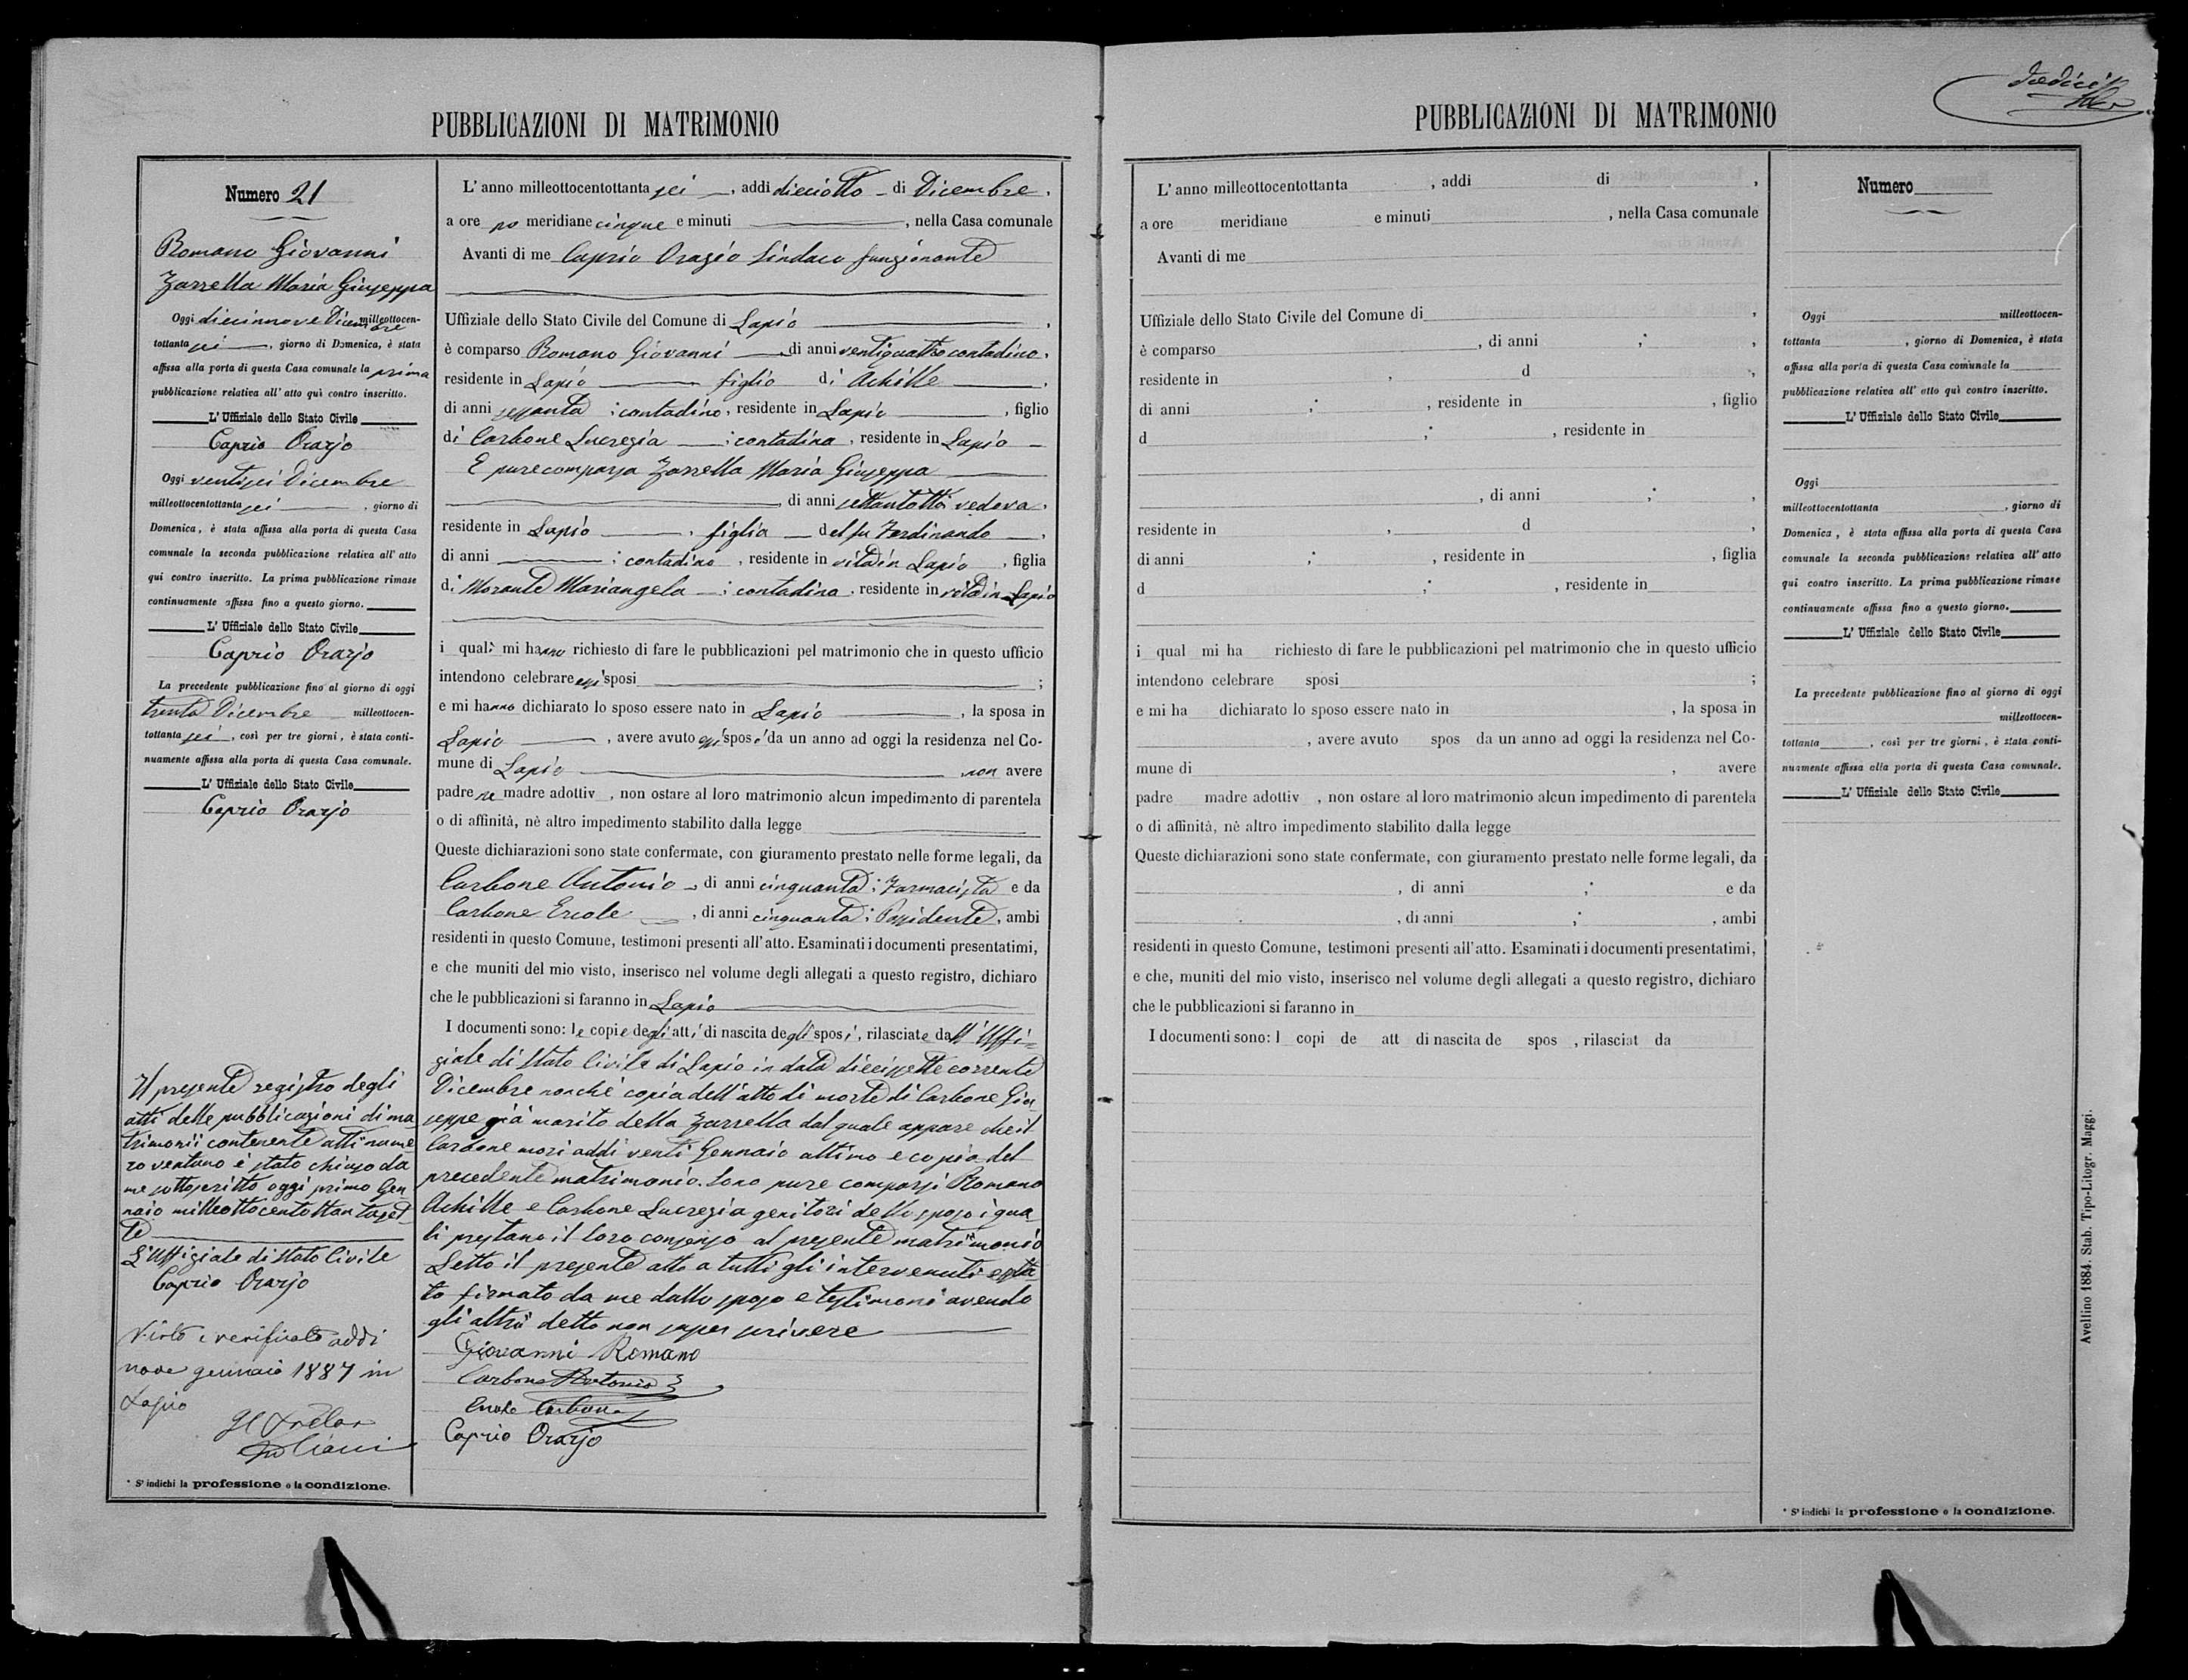 PUBBLICAZIONI DI MATRIMONIO
Numero 21
Romano Giovanni
Zarrella Maria Giuseppa
Oggi diecinnove Dicembre milleottocen-
tottanta sei, giorno di Domenica, è stata
affissa alla porta di questa Casa comunale la prima
pubblicazione relativa all' atto quì contro inscritto.
L' Uffiziale dello Stato Civile
Caprio Orazjo
Oggi ventisei Dicembre
milleottocentottanta sei, giorno di
Domenica, è stata affissa alla porta di questa Casa
comunale la seconda pubblicazione relativa all' atto
qui contro inscritto. La prima pubblicazione rimase
continuamente affissa fino a questo giorno.
L' Uffiziale dello Stato Civile
Caprio Orazjo
La precedente pubblicazione fino al giorno di oggi
trenta Dicembre milleottocen-
tottanta sei, così per tre giorni, è stata conti-
nuamente affissa alla porta di questa Casa comunale.
L' Uffiziale dello Stato Civile
Caprio Orazjo
Il presente registro degli
atti delle pubblicazioni di ma
trimonii contenente atti nume
ro ventuno è stato chiuso da
me sottoscritto oggi primo Gen
naio milleottocentottantaset
te
L'Uffiziale di Stato Civile
Caprio Orazjo
Visto e verificato addi
nove gennaio 1887 in
Lapio
* S' indichi la professione o la condizione.
L' anno milleottocentottanta sei, addi dieciotto di Dicembre,
a ore po meridiane cinque e minuti, nella Casa comunale
Avanti di me Caprio Orazio Sindaco funzionante
Uffiziale dello Stato Civile del Comune di Lapio,
è comparso Romano Giovanni, di anni ventiquattro contadino,
residente in Lapio figlio di Achille,
di anni sessanta; contadino, residente in Lapio, figlio
di Carbone Lucrezia; contadina, residente in Lapio
E pure comparsa Zarrella Maria Giuseppa
di anni settantotto vedova,
residente in Lapio, figlia del fu Ferdinando,
di anni; contadino, residente in vita in Lapio, figlia
di Morante Mariangela; contadina, residente in vita in Lapio
i quali mi hanno richiesto di fare le pubblicazioni pel matrimonio che in questo ufficio
intendono celebrare essi sposi;
e mi hanno dichiarato lo sposo essere nato in Lapio, la sposa in
Lapio, avere avuto essi sposi da un anno ad oggi la residenza nel Co-
mune di Lapio, non avere
padre ne madre adottiv, non ostare al loro matrimonio alcun impedimento di parentela
o di affinità, nè altro impedimento stabilito dalla legge
Queste dichiarazioni sono state confermate, con giuramento prestato nelle forme legali, da
Carbone Antonio, di anni cinquanta; Farmacista e da
Carbone Ercole, di anni cinquanta; Possidente, ambi
residenti in questo Comune, testimoni presenti all' atto. Esaminati i documenti presentatimi,
e che muniti del mio visto, inserisco nel volume degli allegati a questo registro, dichiaro
che le pubblicazioni si faranno in Lapio
I documenti sono: le copie degli atti di nascita degli sposi, rilasciate dall' Uffi-
ziale di Stato Civile di Lapio in data diecissette corrente
Dicembre nonchè copia dell'atto di morte di Carbone Giu
seppe già marito della Zarrella dal quale appare che il
Carbone morì addi venti Gennaio ultimo e copia del
precedente matrimonio. Sono pure comparsi Romano
Achille e Carbone Lucrezia genitori dello sposo i qua
li prestano il loro consenso al presente matrimonio
Letto il presente atto a tutti gli intervenuti e sta
to firmato da me dallo sposo e testimoni avendo
gli altri detto non saper scrivere
Giovanni Romano
Carbone Antonio
Ercole Carbone
Caprio Orazjo
PUBBLICAZIONI DI MATRIMONIO
L' anno milleottocentottanta, addi di,
a ore meridiane e minuti, nella Casa comunale
Avanti di me
Uffiziale dello Stato Civile del Comune di,
è comparso, di anni;,
residente in, d,
di anni;, residente in, figlio
d;, residente in
, di anni;,
residente in, d,
di anni;, residente in, figlia
d;, residente in
i qual mi ha richiesto di fare le pubblicazioni pel matrimonio che in questo ufficio
intendono celebrare sposi;
e mi ha dichiarato lo sposo essere nato in, la sposa in
, avere avuto spos da un anno ad oggi la residenza nel Co-
mune di, avere
padre madre adottiv, non ostare al loro matrimonio alcun impedimento di parentela
o di affinità, nè altro impedimento stabilito dalla legge
Queste dichiarazioni sono state confermate, con giuramento prestato nelle forme legali, da
, di anni; e da
, di anni;, ambi
residenti in questo Comune, testimoni presenti all' atto. Esaminati i documenti presentatimi,
e che, muniti del mio visto, inserisco nel volume degli allegati a questo registro, dichiaro
che le pubblicazioni si faranno in
I documenti sono: l copi de att di nascita de spos, rilasciat da
Numero
Oggi milleottocen-
tottanta, giorno di Domenica, è stata
affissa alla porta di questa Casa comunale la
pubblicazione relativa all' atto quì contro inscritto.
L' Uffiziale dello Stato Civile
Oggi
milleottocentottanta, giorno di
Domenica, è stata affissa alla porta di questa Casa
comunale la seconda pubblicazione relativa all' atto
qui contro inscritto. La prima pubblicazione rimase
continuamente affissa fino a questo giorno.
L' Uffiziale dello Stato Civile
La precedente pubblicazione fino al giorno di oggi
milleottocen-
tottanta, così per tre giorni, è stata conti-
nuamente affissa alla porta di questa Casa comunale.
L' Uffiziale dello Stato Civile
* S' indichi la professione o la condizione.
Avellino 1884. Stab. Tipo-Litogr. Maggi.